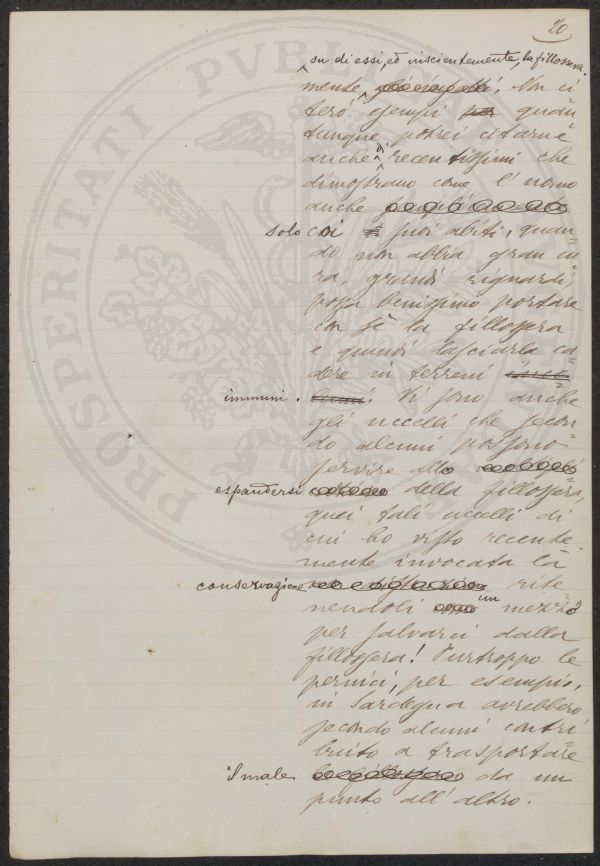 20
su di essi, ed inscientemente, la fillossera.
mente, Non ci
terò esempi quan
tunque potrei citarne
anche di recentissimi che
dimostrano come l'uomo
anche
solo coi suoi abiti, quan=
do non abbia gran cu
ra, grandi riguardi,
possa benissimo portare
con sè la fillossera
e quindi lasciarla ca=
dere in terreni
immuni. Vi sono anche
gli uccelli che secon
do alcuni possono
servire allo
espandersi della fillossera,
quei tali uccelli di
cui ho visto recente
mente invocata la
conservazione rite=
nendoli un mezzo
per salvarci dalla
fillossera! Purtroppo le
pernici, per esempio,
in Sardegna avrebbero
secondo alcuni contri
buito a trasportare
il male da un
punto all'altro.
PROSPERITATI PUBLICAE